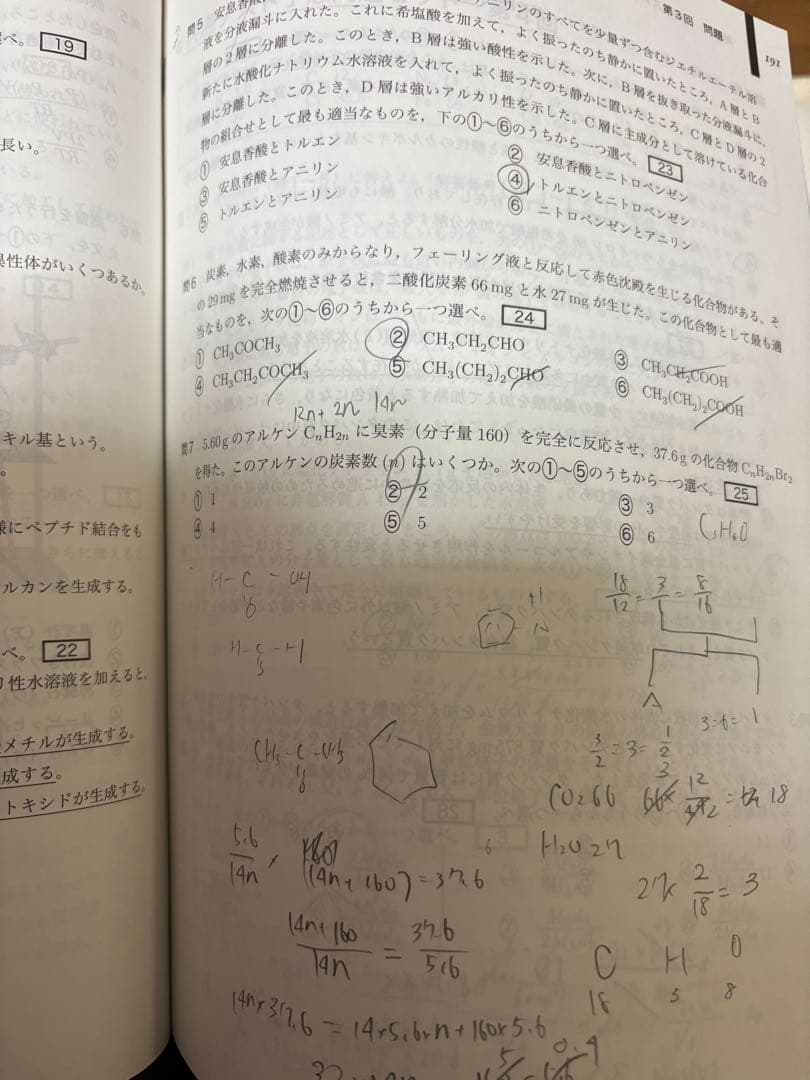 第3回 問題
191
19
べ。
長い。
異性体がいくつあるか。
キル基という。
様にペプチド結合をも
ルカンを生成する。
べ。 22
リ性水溶液を加えると,
メチルが生成する。
成する。
トキシドが生成する。
問5 安息香酸, ニリンのすべてを少量ずつ含むジエチルエーテル溶
液を分液漏斗に入れた。これに希塩酸を加えて,よく振ったのち静かに置いたところ,A層とB
層の2層に分離した。このとき,B層は強い酸性を示した。次に,B層を抜き取った分液漏斗に,
新たに水酸化ナトリウム水溶液を入れて,よく振ったのち静かに置いたところ,C層とD層の2
層に分離した。このとき,D層は強いアルカリ性を示した。C層に主成分として溶けている化合
物の組合せとして最も適当なものを,下の①~⑥のうちから一つ選べ。 23
① 安息香酸とトルエン
② 安息香酸とニトロベンゼン
③ 安息香酸とアニリン
④ トルエンとニトロベンゼン
⑤ トルエンとアニリン
⑥ ニトロベンゼンとアニリン
問6 炭素,水素,酸素のみからなり,フェーリング液と反応して赤色沈殿を生じる化合物がある。そ
の29mgを完全燃焼させると,二酸化炭素66mgと水27mgが生じた。この化合物として最も適
当なものを,次の①~⑥のうちから一つ選べ。 24
① CH₃COCH₃
② CH₃CH₂CHO
③ CH₃CH₂COOH
④ CH₃CH₂COCH₃
⑤ CH₃(CH₂)₂CHO
⑥ CH₃(CH₂)₂COOH
12n+2n 14n
問7 5.60gのアルケンCₙH₂ₙに臭素(分子量160)を完全に反応させ,37.6gの化合物CₙH₂ₙBr₂
を得た。このアルケンの炭素数(n)はいくつか。次の①~⑤のうちから一つ選べ。 25
① 1
② 2
③ 3
④ 4
⑤ 5
⑥ 6
C₃H₆O
H-C-OH
18/12 = 3/2 = 8/16
A
3=6=1
3/2=3=1/2
CO₂66
18
H₂O 27
27× 2/18 = 3
5.6/14n × (14n+160) = 37.6
14n+160/14n = 37.6/5.6
C H O
18 3 8
14n×37.6 = 14×5.6×n+160×5.6